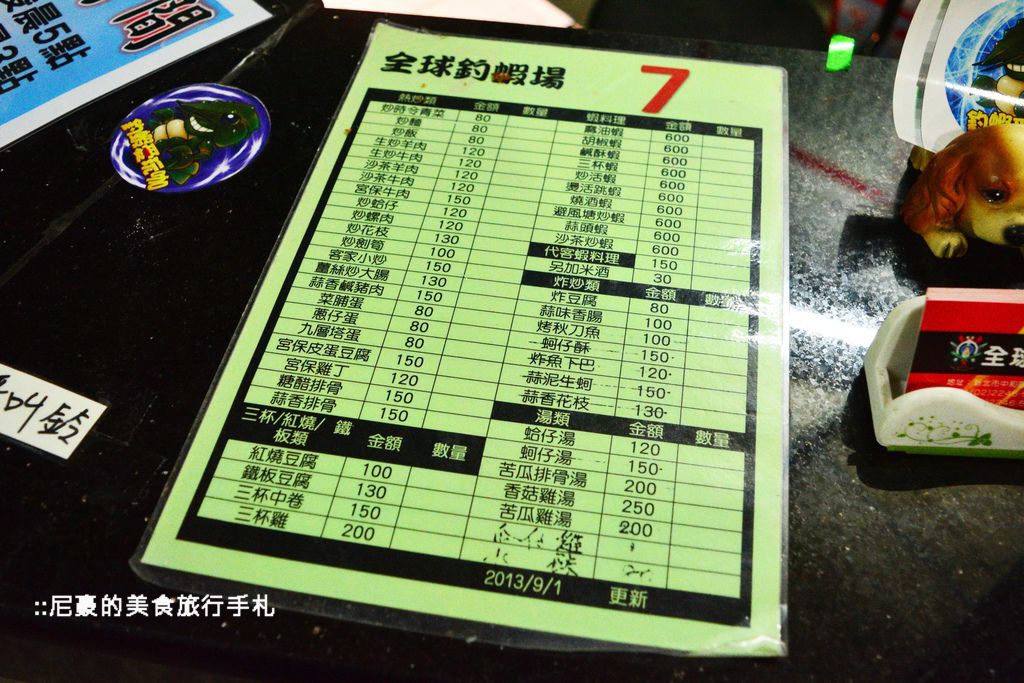 全球釣蝦場
7
熱炒類 金額 數量
炒時令青菜 80
炒麵 80
炒飯 80
生炒羊肉 120
生炒牛肉 120
沙茶羊肉 120
沙茶牛肉 120
宮保牛肉 150
炒蛤仔 120
炒螺肉 120
炒花枝 130
炒劍筍 100
客家小炒 150
薑絲炒大腸 130
蒜香鹹豬肉 150
菜脯蛋 80
蔥仔蛋 80
九層塔蛋 80
宮保皮蛋豆腐 150
宮保雞丁 120
糖醋排骨 150
蒜香排骨 150
三杯/紅燒/鐵板類 金額 數量
紅燒豆腐 100
鐵板豆腐 130
三杯中卷 150
三杯雞 200
蝦料理 金額 數量
麻油蝦 600
胡椒蝦 600
鹹酥蝦 600
三杯蝦 600
炒活蝦 600
燙活跳蝦 600
燒酒蝦 600
避風塘炒蝦 600
蒜頭蝦 600
沙茶炒蝦 600
代客蝦料理 150
另加米酒 30
炸炒類 金額 數量
炸豆腐 80
蒜味香腸 100
烤秋刀魚 100
蚵仔酥 150
炸魚下巴 120
蒜泥生蚵 150
蒜香花枝 130
湯類 金額 數量
蛤仔湯 120
蚵仔湯 150
苦瓜排骨湯 200
香菇雞湯 250
苦瓜雞湯 200
2013/9/1 更新
::尼豪的美食旅行手札